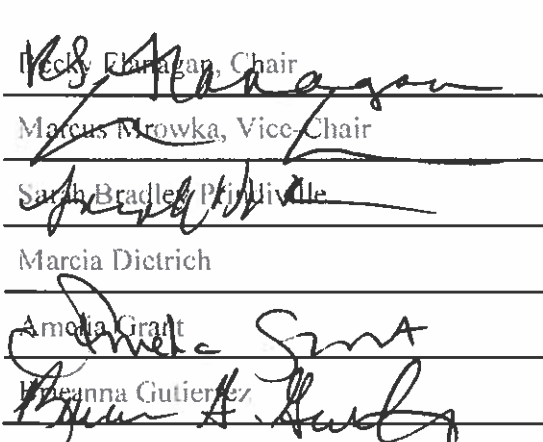 Becky Flanagan, Chair
Marcus Mrowka, Vice-Chair
Sarah Bradley Prindiville
Marcia Dietrich
Amelia Grant
Amelia Grant
Breeanna Gutierrez